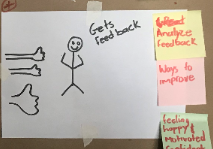 Gets
feedback
Analyze
feedback
Ways to
improve
feeling
happy!
Motivated